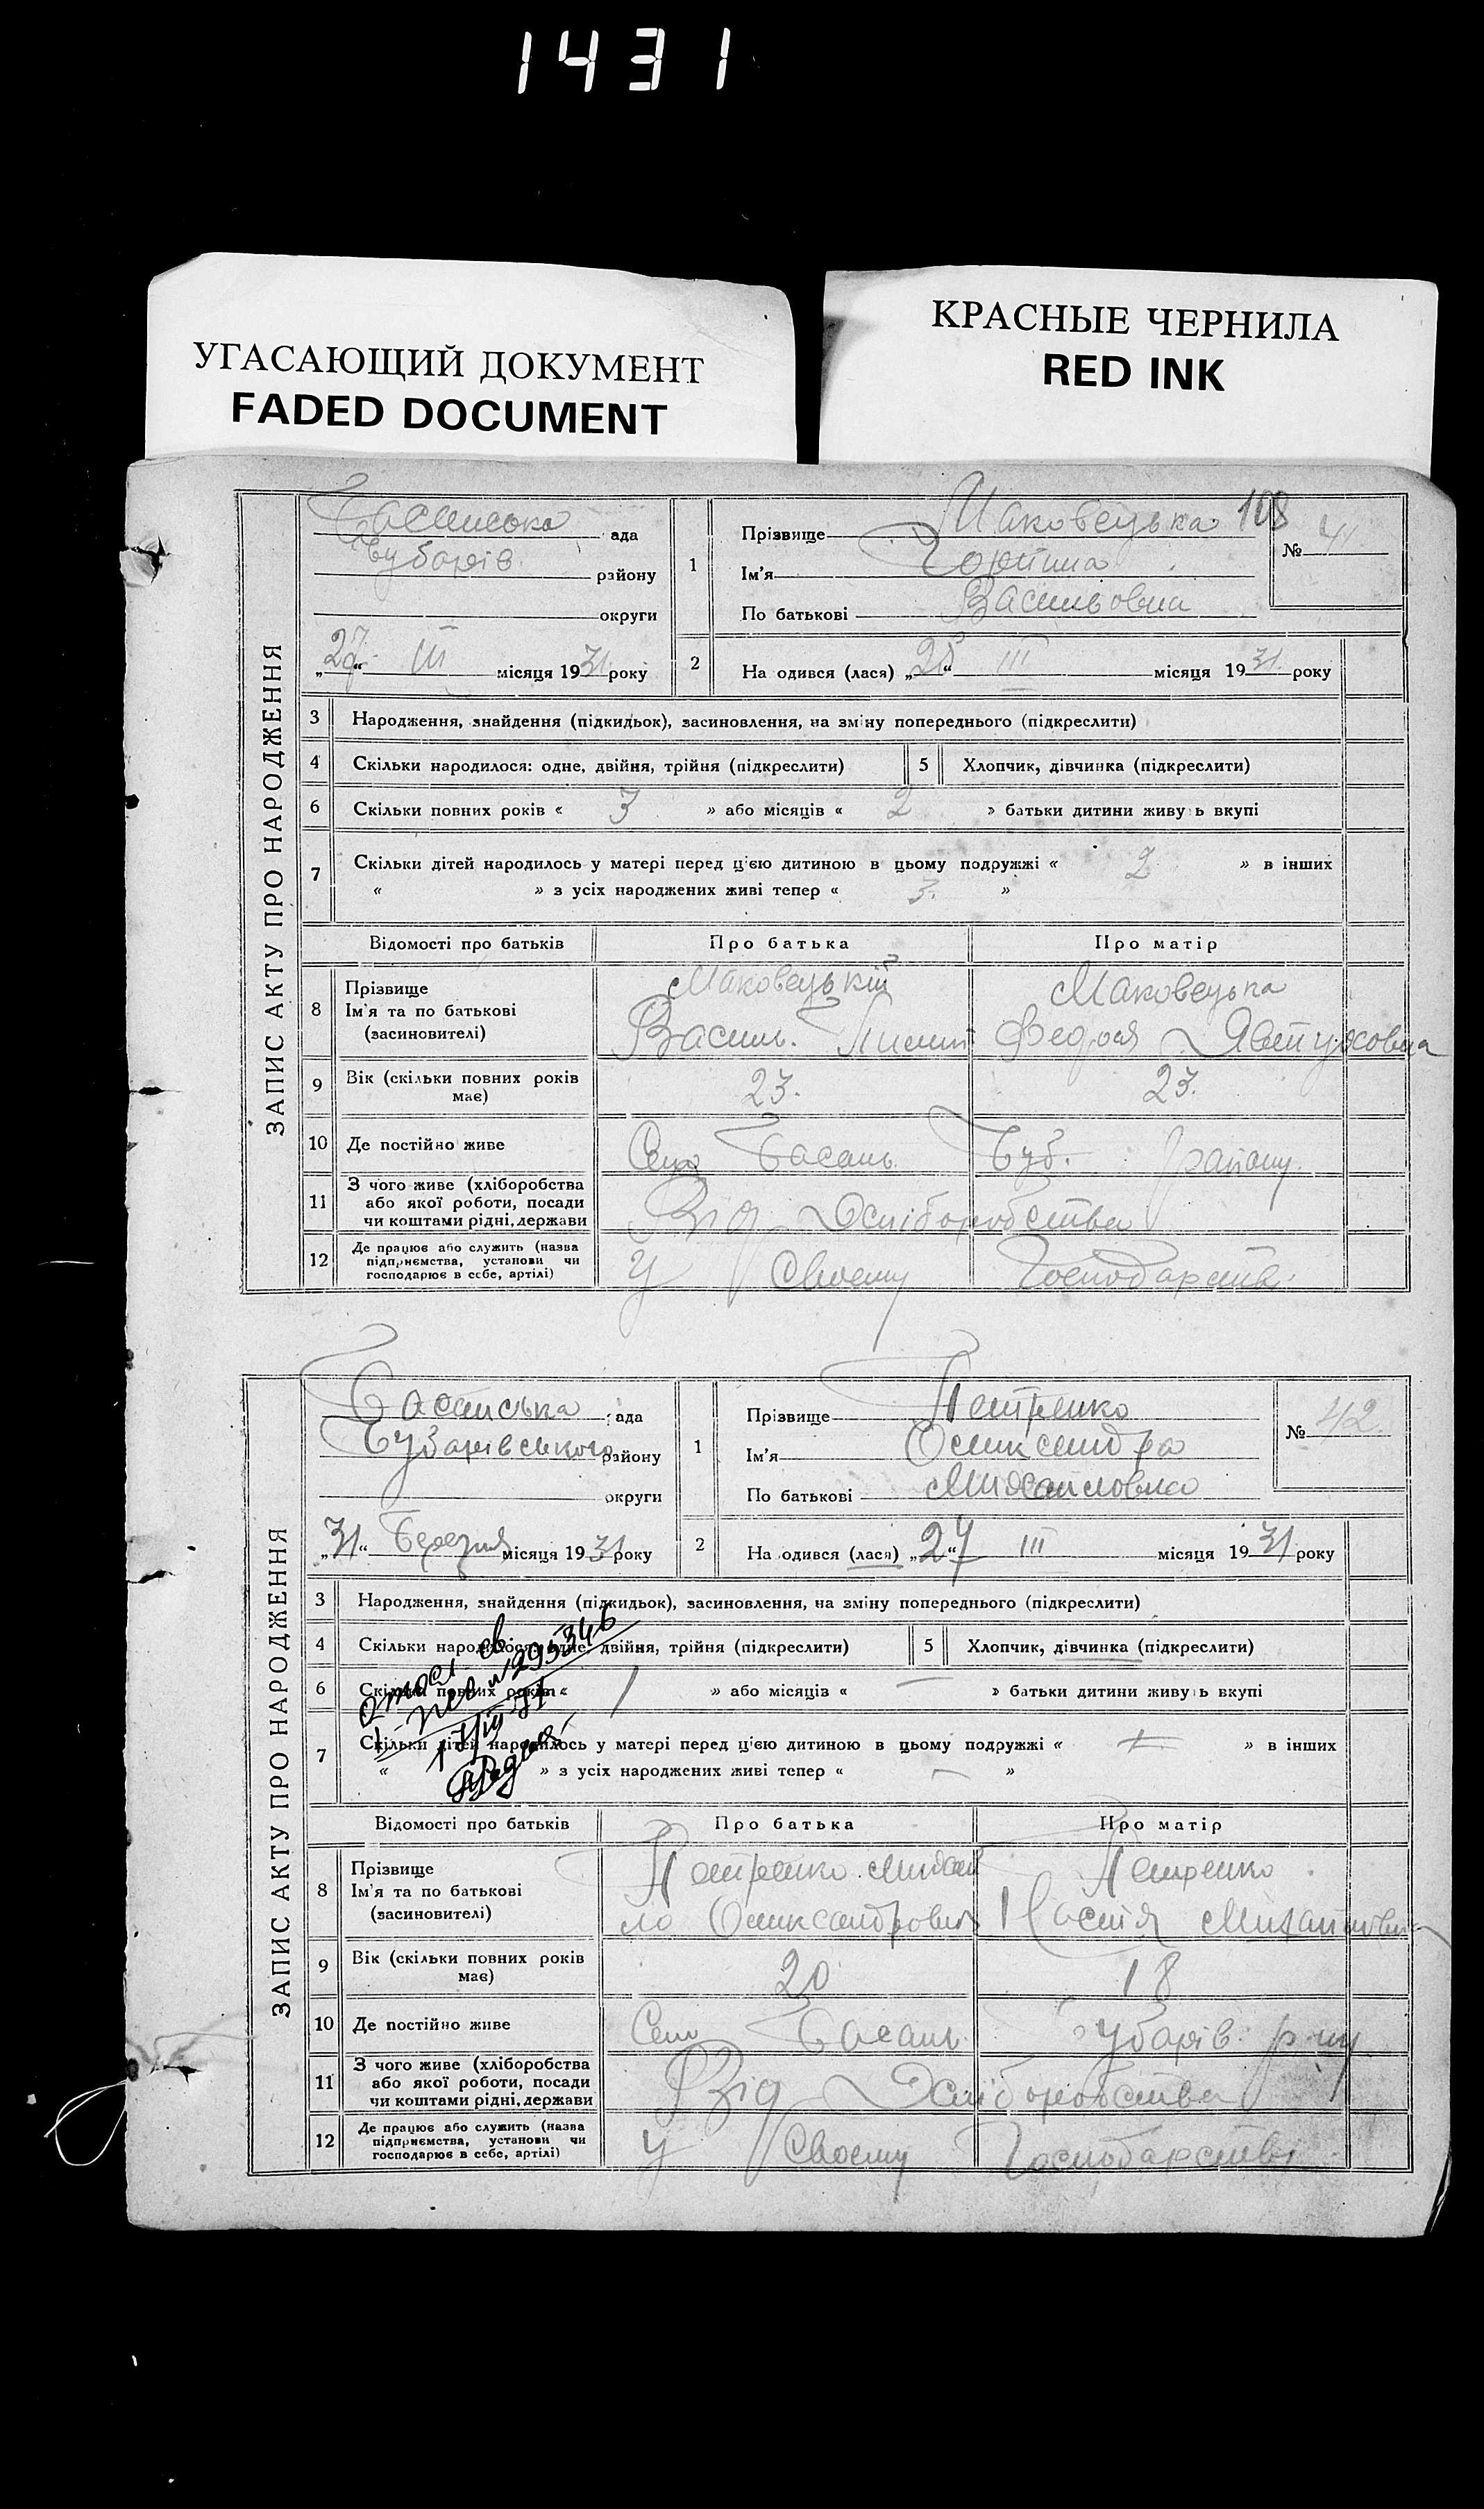 1431
УГАСАЮЩИЙ ДОКУМЕНТ
FADED DOCUMENT
КРАСНЫЕ ЧЕРНИЛА
RED INK
108
ЗАПИС АКТУ ПРО НАРОДЖЕННЯ
Басанська ада
району
округи
III місяця 1931 року
1
Прізвище Маковецька
Ім'я
По батькові Васильовна
№ 41
2
На одився (лася) „25“ III місяця 1931 року
3 Народження, знайдення (підкидьок), засиновлення, на зміну попереднього (підкреслити)
4 Скільки народилося: одне, двійня, трійня (підкреслити)
5 Хлопчик, дівчинка (підкреслити)
6 Скільки повних років « 3 » або місяців « 2 » батьки дитини живу ь вкупі
7 Скільки дітей народилось у матері перед ц'єю дитиною в цьому подружжі « 2 » в інших
« » з усіх народжених живі тепер « 3. »
Відомості про батьків Про батька Про матір
8 Прізвище
Ім'я та по батькові
(засиновителі)
Маковецькій
Василь
Маковецька
Федося Явтуховна
9 Вік (скільки повних років має) 23. 23.
10 Де постійно живе Село Басань Буб. району
11 З чого живе (хліборобства
або якої роботи, посади
чи коштами рідні, держави
Від Хліборобства
12 Де працює або служить (назва
підприємства, установи чи
господарює в себе, артілі)
У Своему Господарстві
ЗАПИС АКТУ ПРО НАРОДЖЕННЯ
Басанська ада
Бубарівського району
округи
„31“ Березня місяця 1931 року
1
Прізвище Петренко
Ім'я Олександра
По батькові Михайловна
№ 42
2
На одився (лася) „27“ III місяця 1931 року
3 Народження, знайдення (підкидьок), засиновлення, на зміну попереднього (підкреслити)
4 Скільки народилося: одне, двійня, трійня (підкреслити)
5 Хлопчик, дівчинка (підкреслити)
6 Скільки повних років « 1 » або місяців « — » батьки дитини живу ь вкупі
7 Скільки дітей народилось у матері перед ц'єю дитиною в цьому подружжі « » в інших
« » з усіх народжених живі тепер « — »
№295346
Відомості про батьків Про батька Про матір
8 Прізвище
Ім'я та по батькові
(засиновителі)
Петренко Михай
ло Олександрович
Петренко
Настя Михайловна
9 Вік (скільки повних років має) 20 18
10 Де постійно живе Село Басань Бубарів р-ну
11 З чого живе (хліборобства
або якої роботи, посади
чи коштами рідні, держави
Від Хліборобства
12 Де працює або служить (назва
підприємства, установи чи
господарює в себе, артілі)
У Своему Господарстві